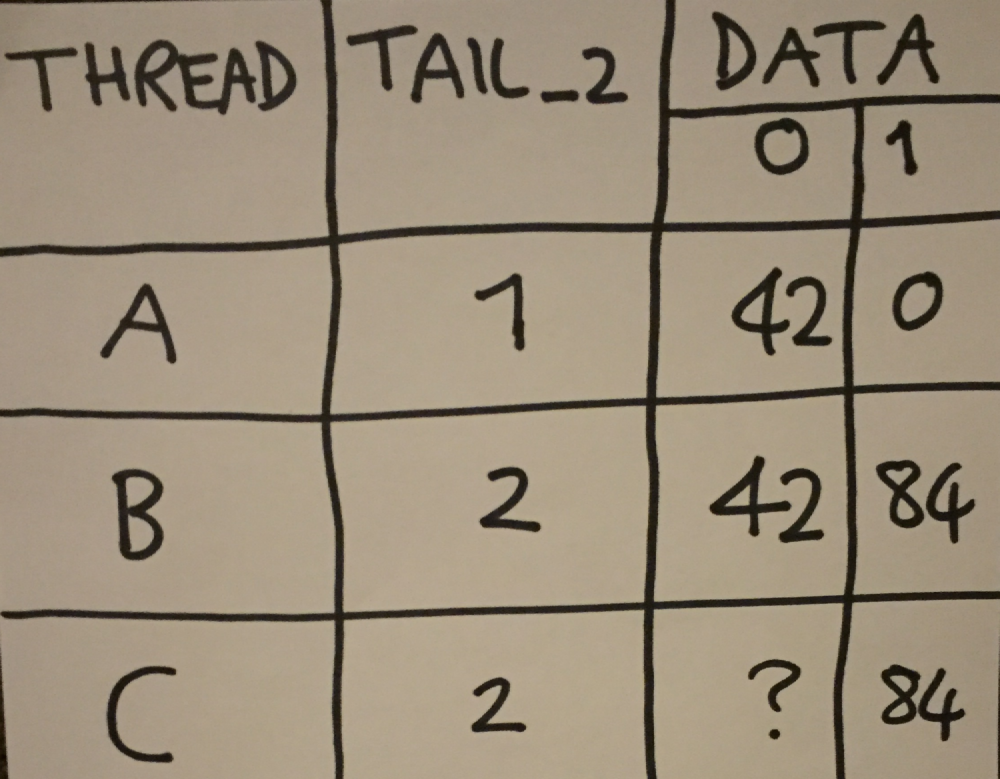 THREAD TAIL_2 DATA
0 1
A 1 42 0
B 2 42 84
C 2 ? 84